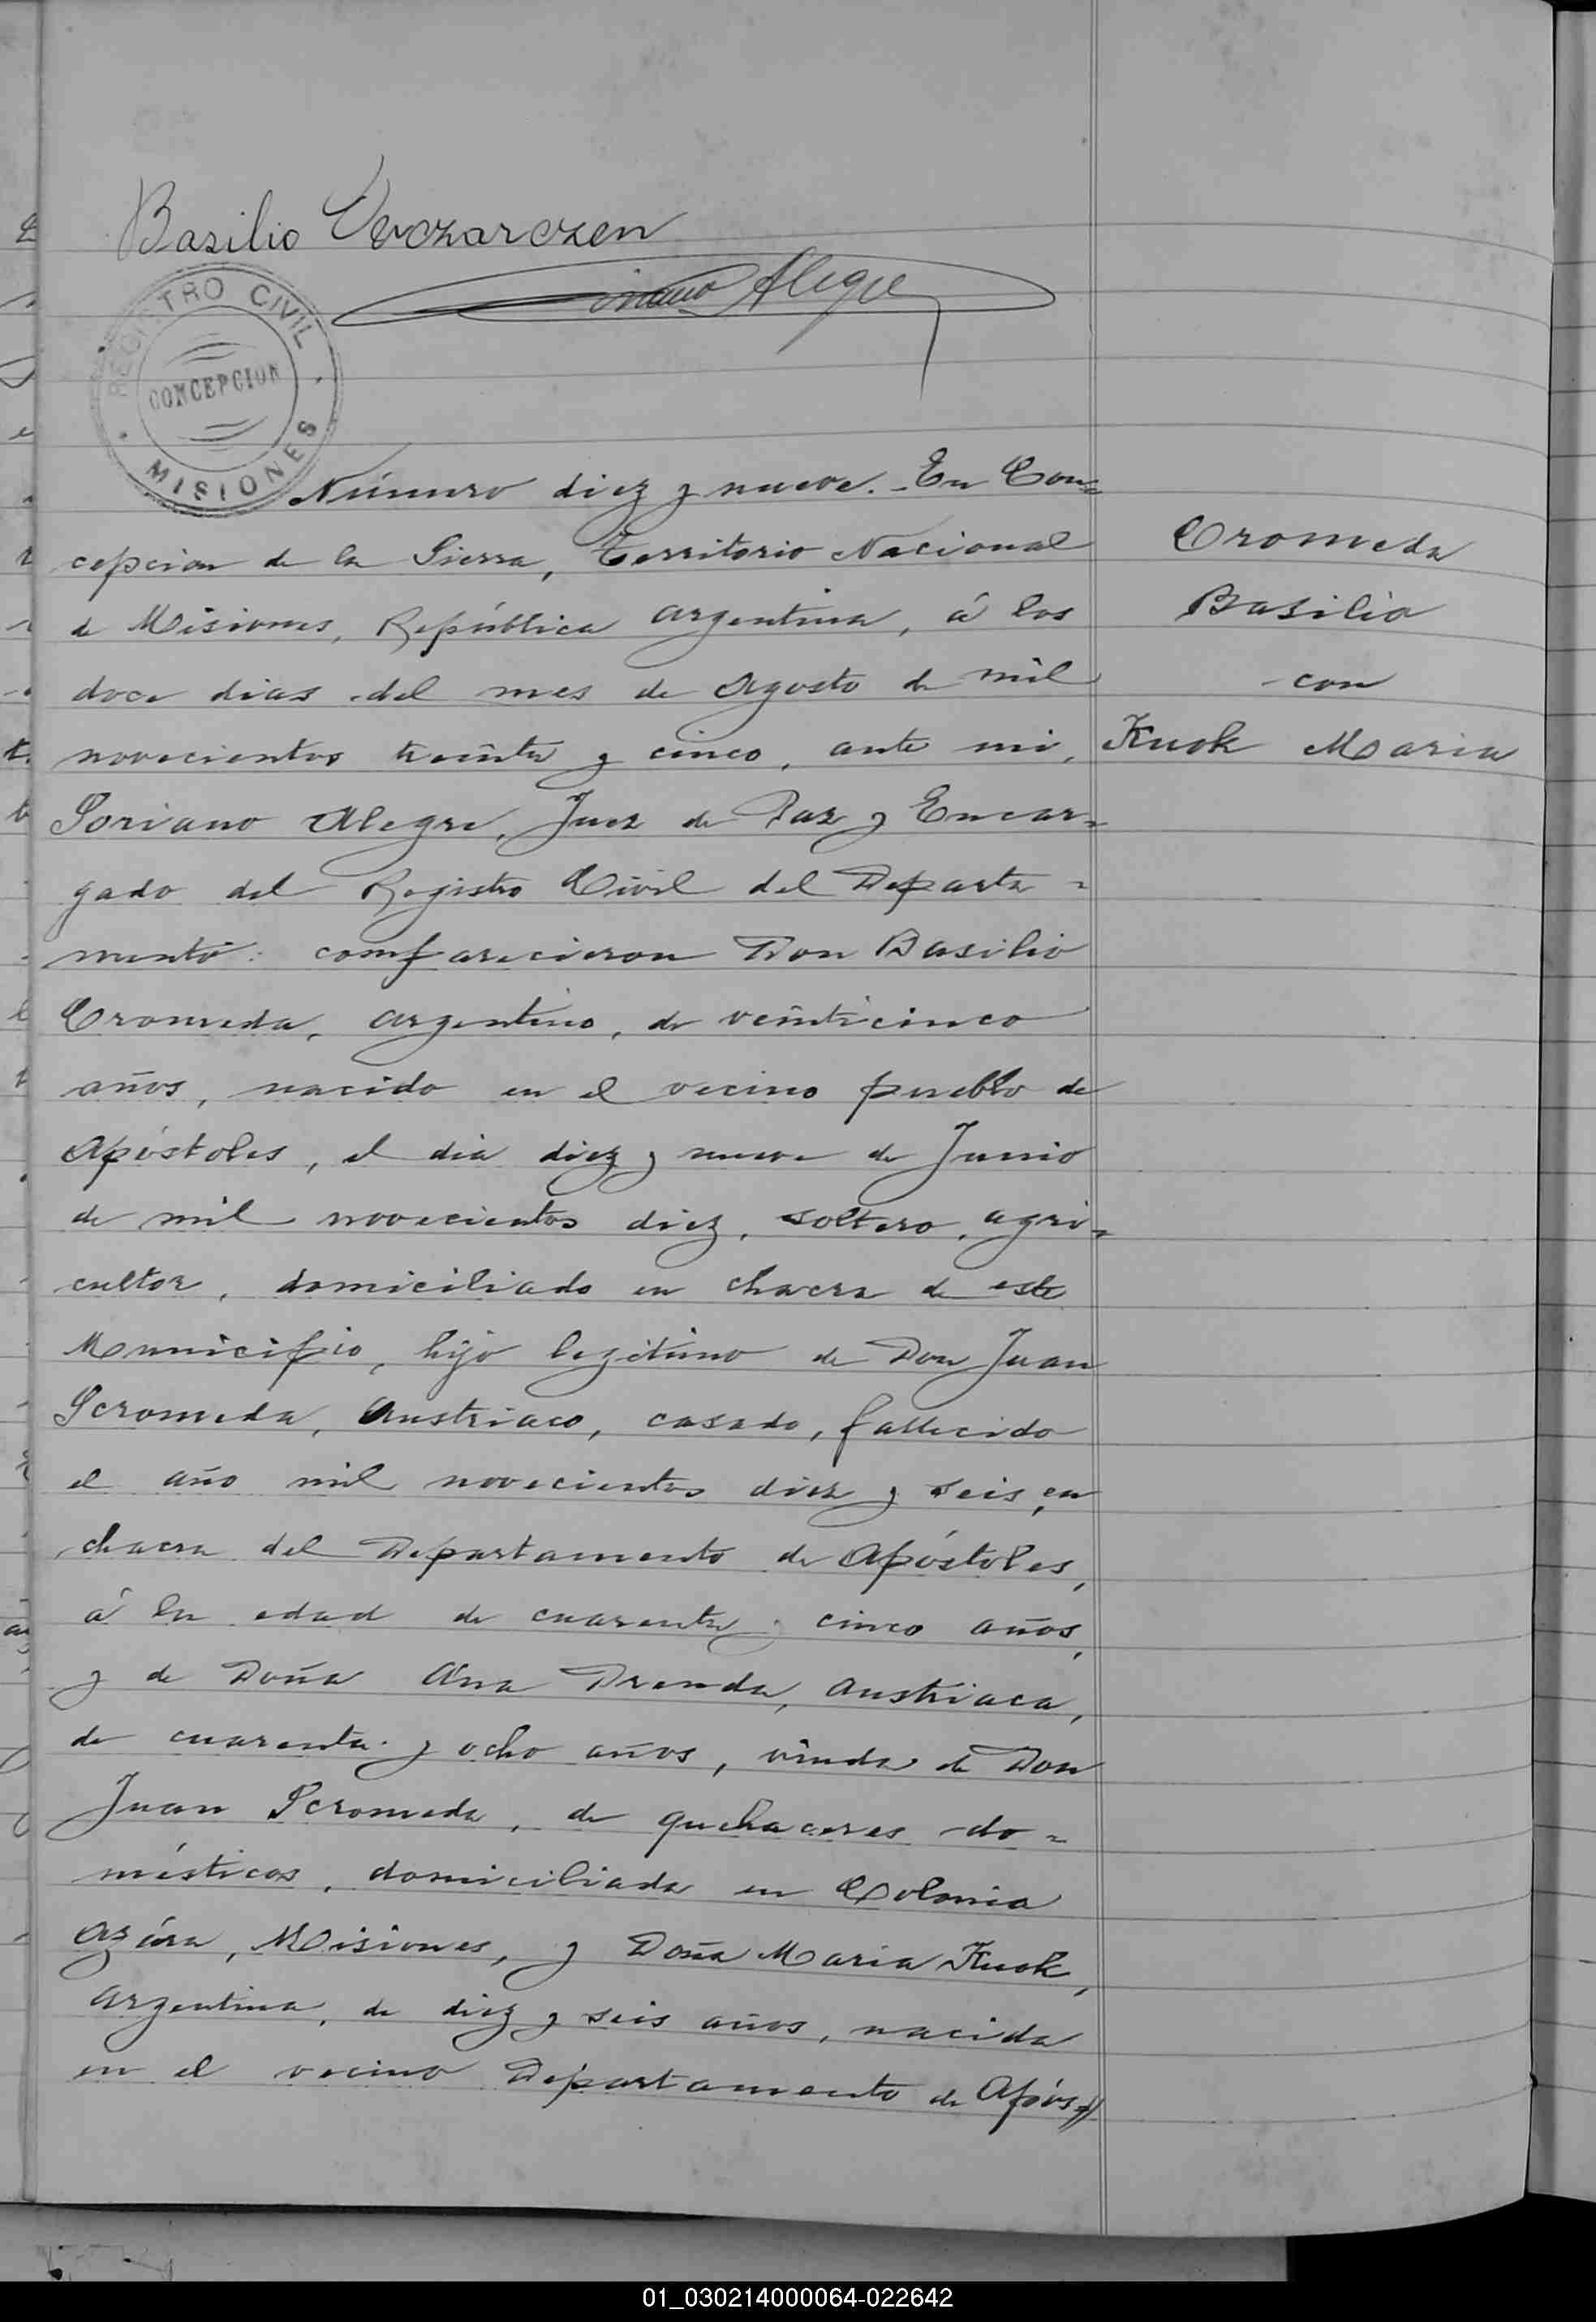 Basilio
Alegre
REGISTRO CIVIL
CONCEPCION
MISIONES
Número diez y nueve. - En Con=
cepcion de la Sierra, Territorio Nacional
de Misiones, República Argentina, á los
doce dias del mes de Agosto de mil
novecientos treinta y cinco, ante mi,
Soriano Alegre, Juez de Paz y Encar=
gado del Registro Civil del Departa=
mento: comparecieron Don Basilio
Cromeda, argentino, de veinticinco
años, nacido en el vecino pueblo de
Apóstoles, el dia diez y nueve de Junio
de mil novecientos diez, soltero, agri=
cultor, domiciliado en chacra de este
Municipio, hijo legítimo de Don Juan
Scromeda, Austriaco, casado, fallecido
el año mil novecientos diez y seis, en
chacra del Departamento de Apóstoles,
á la edad de cuarenta y cinco años,
y de Doña Ana Drenda, austriaca,
de cuarenta y ocho años, viuda de Don
Juan Scromeda, de quehaceres do=
mésticos, domiciliada en Colonia
Azára, Misiones, y Doña Maria Kuok,
argentina, de diez y seis años, nacida
en el vecino Departamento de Após=//
Cromeda
Basilio
- con
Kuok Maria
01_030214000064-022642